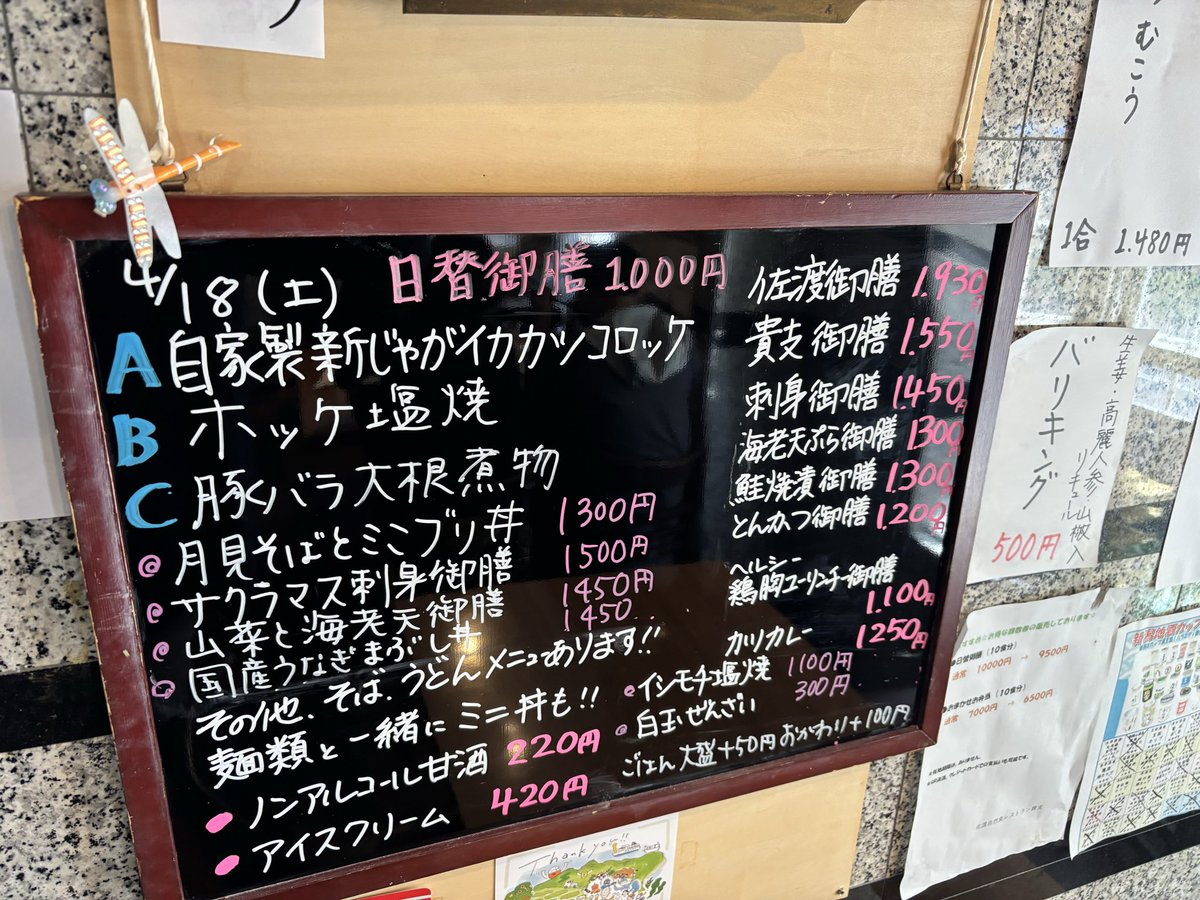 4/18(土) 日替御膳 1.000円
A 自家製新じゃがイカカツコロッケ
B ホッケ塩焼
C 豚バラ大根煮物
月見そばとミニブリ丼 1300円
サクラマス刺身御膳 1500円
山菜と海老天御膳 1450円
国産うなぎまぶし丼 1450
その他、そば、うどんメニューあります!!
麺類と一緒にミニ丼も!!
ノンアルコール甘酒 220円
アイスクリーム 420円
佐渡御膳 1.930円
貴支御膳 1.550円
刺身御膳 1.450円
海老天ぷら御膳 1300円
鮭焼漬御膳 1.300円
とんかつ御膳 1.200円
ヘルシー
鶏胸ユーリンチー御膳
1.100円
カツカレー 1250円
イシモチ塩焼 1100円
白玉ぜんざい 300円
ごはん大盛+50円 おかわり+100円
Thank you!!
むこう
1合 1.480円
生姜・高麗人参・山椒入
リキュール
バリキング
500円
●日替御膳(10食分)
通常 10000円 → 9500円
●おまかせお弁当(10食分)
通常 7000円 → 6500円